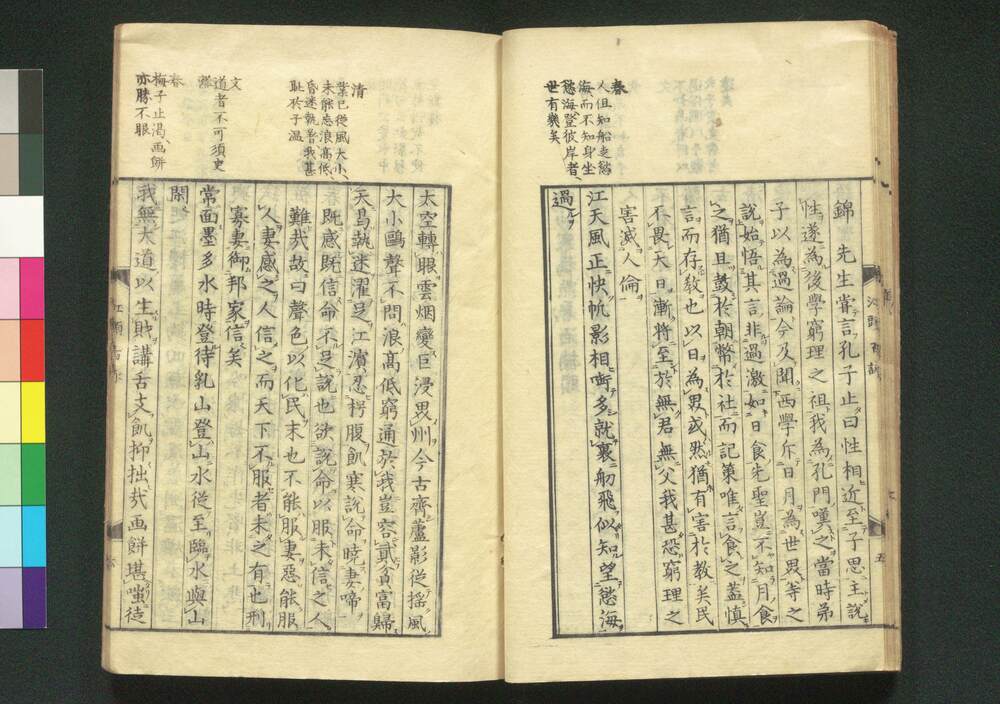 春
人但知船走慾
海而不知身坐
慾海登彼岸者
世有幾矣
錦　先生甞言孔子止曰性相近至子思主說
性遂為後學窮理之祖我為孔門嘆之當時弟
子以為過論今及聞西學斥日月為世界等之
說始悟其言非過激如日食先聖豈不知月食
之猶且鼓於朝幣於社而記策唯言食之蓋慎
言而存敎也以日為界或然猶有害於教矣民
不畏天日漸將至於無君無父我甚恐窮理之
害滅人倫
江天風正快帆影相啣多就裏舫飛似知望慾海
過
清
葉已從風大小
未能忘浪高低
昏迷執着我甚
恥於子温
文
道者不可須臾
離
春
梅子止渴画餅
亦勝不眼
太空轉眼雲烟變巨浸畀州今古齊蘆影從揺風
大小鷗聲不問浪高低窮通於我豈容貳貪富歸
天曷執迷濯足江濱忍枵腹飢寒說命曉妻啼
既感既信命不足說也欲說命以服未信之人
難哉故曰聲色以化民末也不能服妻惡能服
人妻感之人信之而天下不服者未之有也刑
寡妻御邦家信矣
常面墨多水時登待乳山登山水從至臨水與山
閑
我無大道以生財講舌支飢抑拙哉画餅堪嗤徒